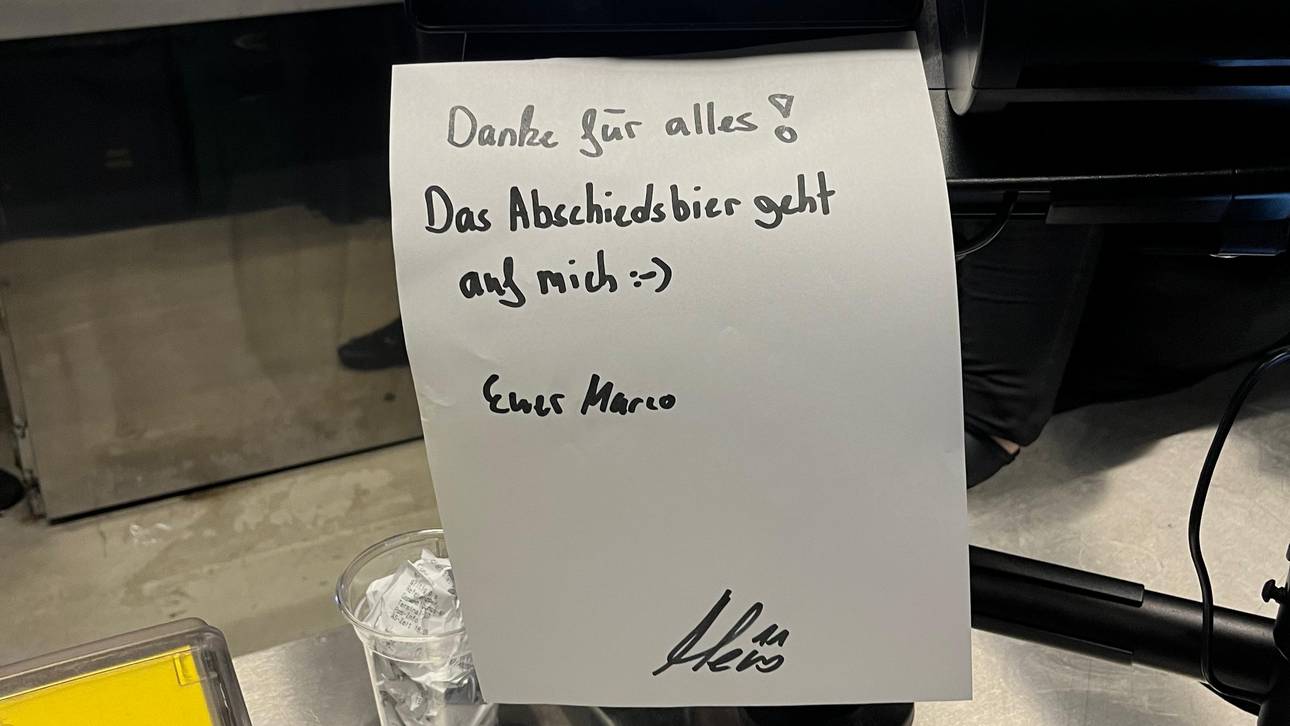 Danke für alles!
Das Abschiedsbier geht
auf mich :-)
Euer Marco
11